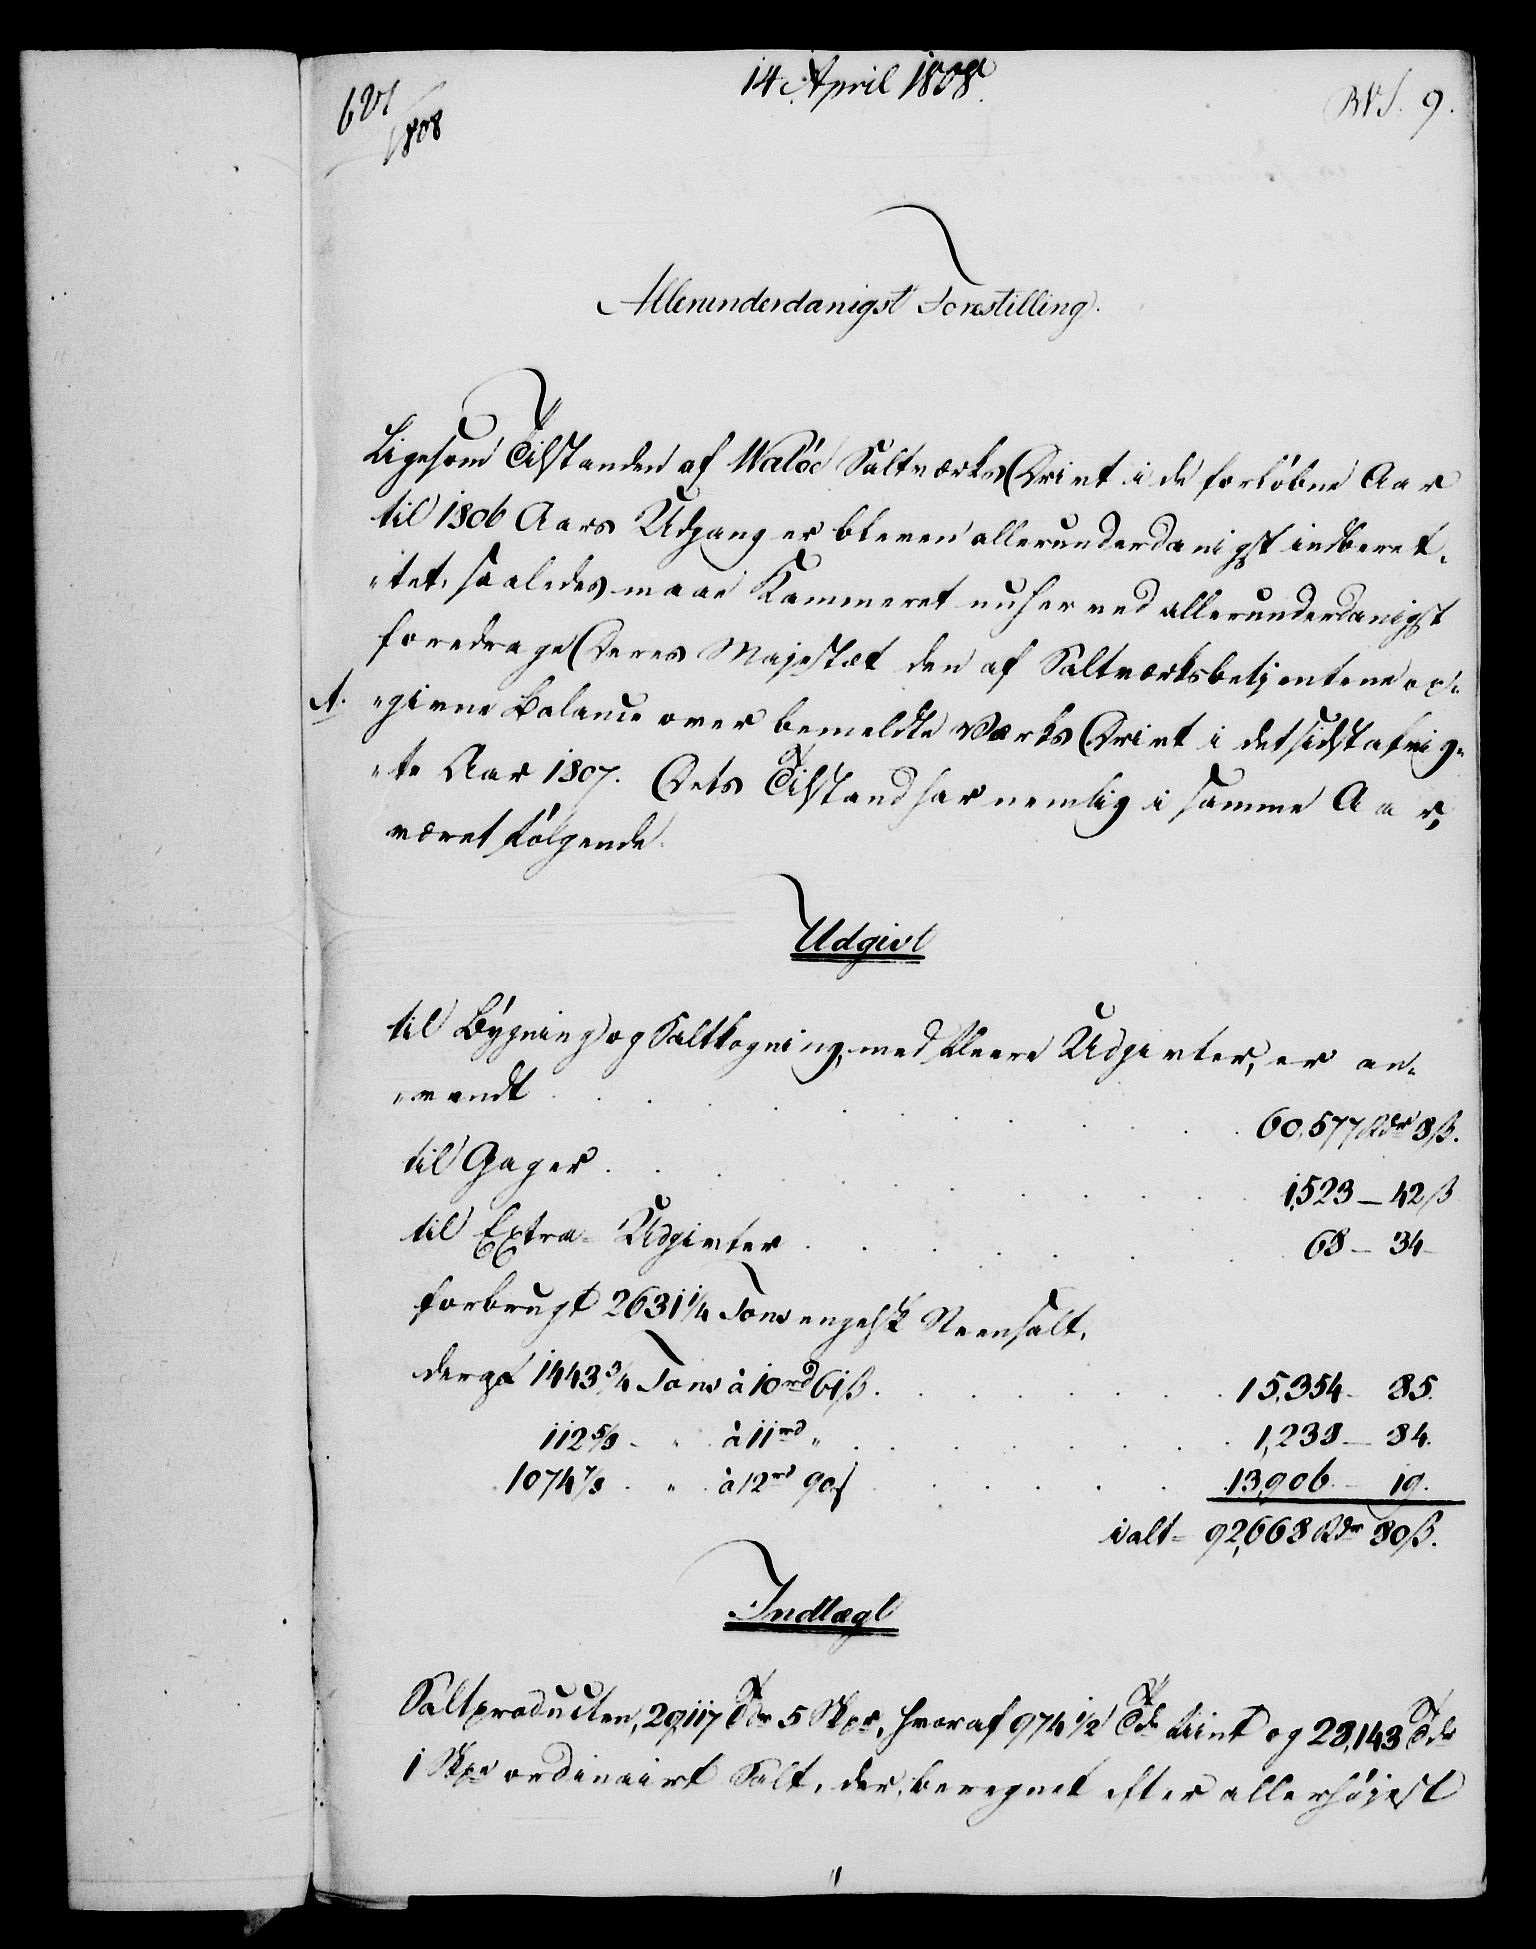 14 April 1808.
1808
9.
Allerunderdanigst Forestilling.
Ligesom Tilstanden af Waløe Saltværks Drivt i de forløbne Aar
til 1806 Aars Udgang er bleven allerunderdanigst indberet-
"tet, saaledes maae Kammeret nu herved allerunderdanigst
foredrage Deres Majestæt den af Saltværksbetjentene op-
A. "givne Balance over bemeldte Værks Drivt i det sidst afvig-
"te Aar 1807. Dets Tilstand har nemlig i samme Aar,
været følgende.
Udgivt
til Bygning og Saltkogning, med fleere Udgivter, er an-
"vendt . . . 60,577 Rdr 8 ß.
til Gager . . . 1,523 – 42 ß
til Extra- Udgivter . . . 68 – 34 –
forbrugt 2631 1/4 Tons engelsk Steensalt,
deraf 1443 3/4 Tons à 10 rd 61 ß . . . 15,354 – 85.
112 5/8 - " à 11 rd " . . . 1,238 – 84.
1074 7/8 - " à 12 rd 90 ß . . . 13,906 – 19.
ialt - 92,668 Rdr 80 ß.
Indtægt
Saltproducten, 29,117 Tdr 5 Skpr, hvoraf 974 1/2 Tdr fiint og 28,143 Tdr
1 Skpe ordinairt Salt, der, beregnet efter allerhøjest